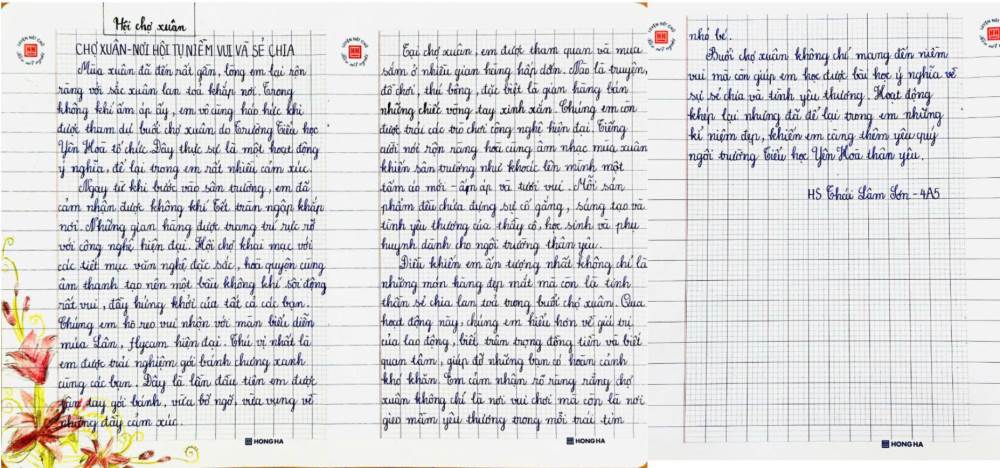 Hội chợ xuân
CHỢ XUÂN-NƠI HỘI TỤ NIỀM VUI VÀ SẺ CHIA
Mùa xuân đã đến rất gần, lòng em lại rộn
ràng với sắc xuân lan toả khắp nơi. Trong
không khí ấm áp ấy, em vô cùng háo hức khi
được tham dự buổi chợ xuân do Trường Tiểu học
Yên Hoà tổ chức. Đây thực sự là một hoạt động
ý nghĩa, để lại trong em rất nhiều cảm xúc.
Ngay từ khi bước vào sân trường, em đã
cảm nhận được không khí Tết tràn ngập khắp
nơi. Những gian hàng được trang trí rực rỡ
với công nghệ hiện đại. Hội chợ khai mạc với
các tiết mục văn nghệ đặc sắc, hoà quyện cùng
âm thanh tạo nên một bầu không khí sôi động
rất vui, đầy hứng khởi của tất cả các bạn.
Chúng em hò reo vui nhộn với màn biểu diễn
múa Lân, flycam hiện đại. Thú vị nhất là
em được trải nghiệm gói bánh chưng xanh
cùng các bạn. Đây là lần đầu tiên em được
tận tay gói bánh, vừa bỡ ngỡ, vừa vụng về
nhưng đầy cảm xúc.
HONG HA
Tại chợ xuân, em được tham quan và mua
sắm ở nhiều gian hàng hấp dẫn. Nào là truyện,
đồ chơi, thú bông, đặc biệt là gian hàng bán
những chiếc vòng tay xinh xắn. Chúng em còn
được trải các trò chơi công nghệ hiện đại. Tiếng
cười nói rộn ràng hoà cùng âm nhạc mùa xuân
khiến sân trường như khoác lên mình một
tấm áo mới - ấm áp và tươi vui. Mỗi sản
phẩm đều chứa đựng sự cố gắng, sáng tạo và
tình yêu thương của thầy cô, học sinh và phụ
huynh dành cho ngôi trường thân yêu.
Điều khiến em ấn tượng nhất không chỉ là
những món hàng đẹp mắt mà còn là tinh
thần sẻ chia lan toả trong buổi chợ xuân. Qua
hoạt động này, chúng em hiểu hơn về giá trị
của lao động, biết trân trọng đồng tiền và biết
quan tâm, giúp đỡ những bạn có hoàn cảnh
khó khăn. Em cảm nhận rõ ràng rằng chợ
xuân không chỉ là nơi vui chơi mà còn là nơi
gieo mầm yêu thương trong mỗi trái tim
HONG HA
nhỏ bé.
Buổi chợ xuân không chỉ mang đến niềm
vui mà còn giúp em học được bài học ý nghĩa về
sự sẻ chia và tình yêu thương. Hoạt động
khép lại nhưng đã để lại trong em những
kỉ niệm đẹp, khiến em càng thêm yêu quý
ngôi trường Tiểu học Yên Hoà thân yêu.
HS Thái Lâm Sơn - 4A5
HONG HA